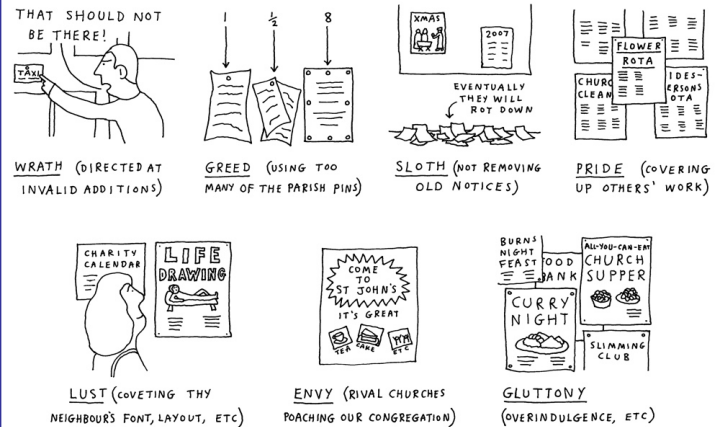 THAT SHOULD NOT
BE THERE!
TAXI
WRATH (DIRECTED AT
INVALID ADDITIONS)
1
½
8
GREED (USING TOO
MANY OF THE PARISH PINS)
XMAS
2007
EVENTUALLY
THEY WILL
ROT DOWN
SLOTH (NOT REMOVING
OLD NOTICES)
FLOWER
ROTA
CHURC
CLEAN
IDES-
ERSONS
OTA
PRIDE (COVERING
UP OTHERS' WORK)
CHARITY
CALENDAR
LIFE
DRAWING
LUST (COVETING THY
NEIGHBOUR'S FONT, LAYOUT, ETC)
COME
TO
ST JOHN'S
IT'S GREAT
TEA
CAKE
ETC
ENVY (RIVAL CHURCHES
POACHING OUR CONGREGATION)
BURNS
NIGHT
FEAST
OOD
BANK
ALL-YOU-CAN-EAT
CHURCH
SUPPER
CURRY
NIGHT
SLIMMING
CLUB
GLUTTONY
(OVERINDULGENCE, ETC)